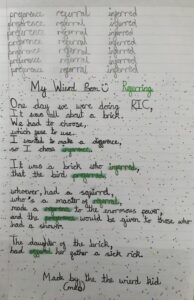 preference referral inferred
preference referral inferred
preference referral inferred
preference referral inferred
preference referral inferred
preference referral inferred
preference referral inferred
My Wierd Poem Referring
One day we were doing RIC,
It was all about a brick.
We had to choose,
which one to use.
I wanted to make a difference,
so I chose
It was a brick who inferred,
that the bird preferred.
whoever, had a squirrel,
who's a master of referral,
made a to the enormous power,
and the preference would be given to those who
had a shower.
The daughter of the brick,
had her father a sick kick.
Made by the the wierd kid
(me)